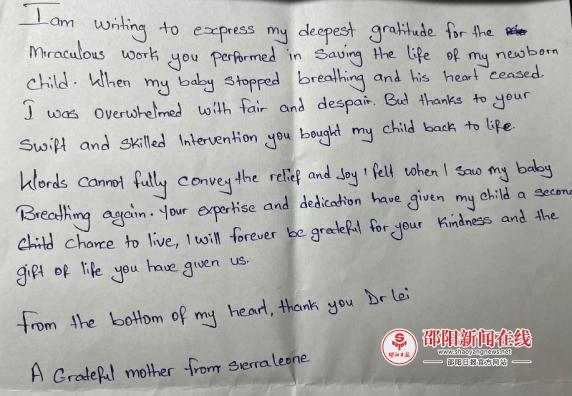 I am writing to express my deepest gratitude for the
Miraculous work you performed in saving the life of my newborn
child. When my baby stopped breathing and his heart ceased.
I was overwhelmed with fair and despair. But thanks to your
swift and skilled Intervention you bought my child back to life.
Words cannot fully convey the relief and Joy I felt when I saw my baby
Breathing again. Your expertise and dedication have given my child a second
Child chance to live, I will forever be grateful for your Kindness and the
gift of life you have given us.
From the bottom of my heart, thank you Dr Lei
A Grateful mother from sierraleone
邵阳新闻在线
www.shaoyangnews.net
邵阳日报官方网站
邵阳日报